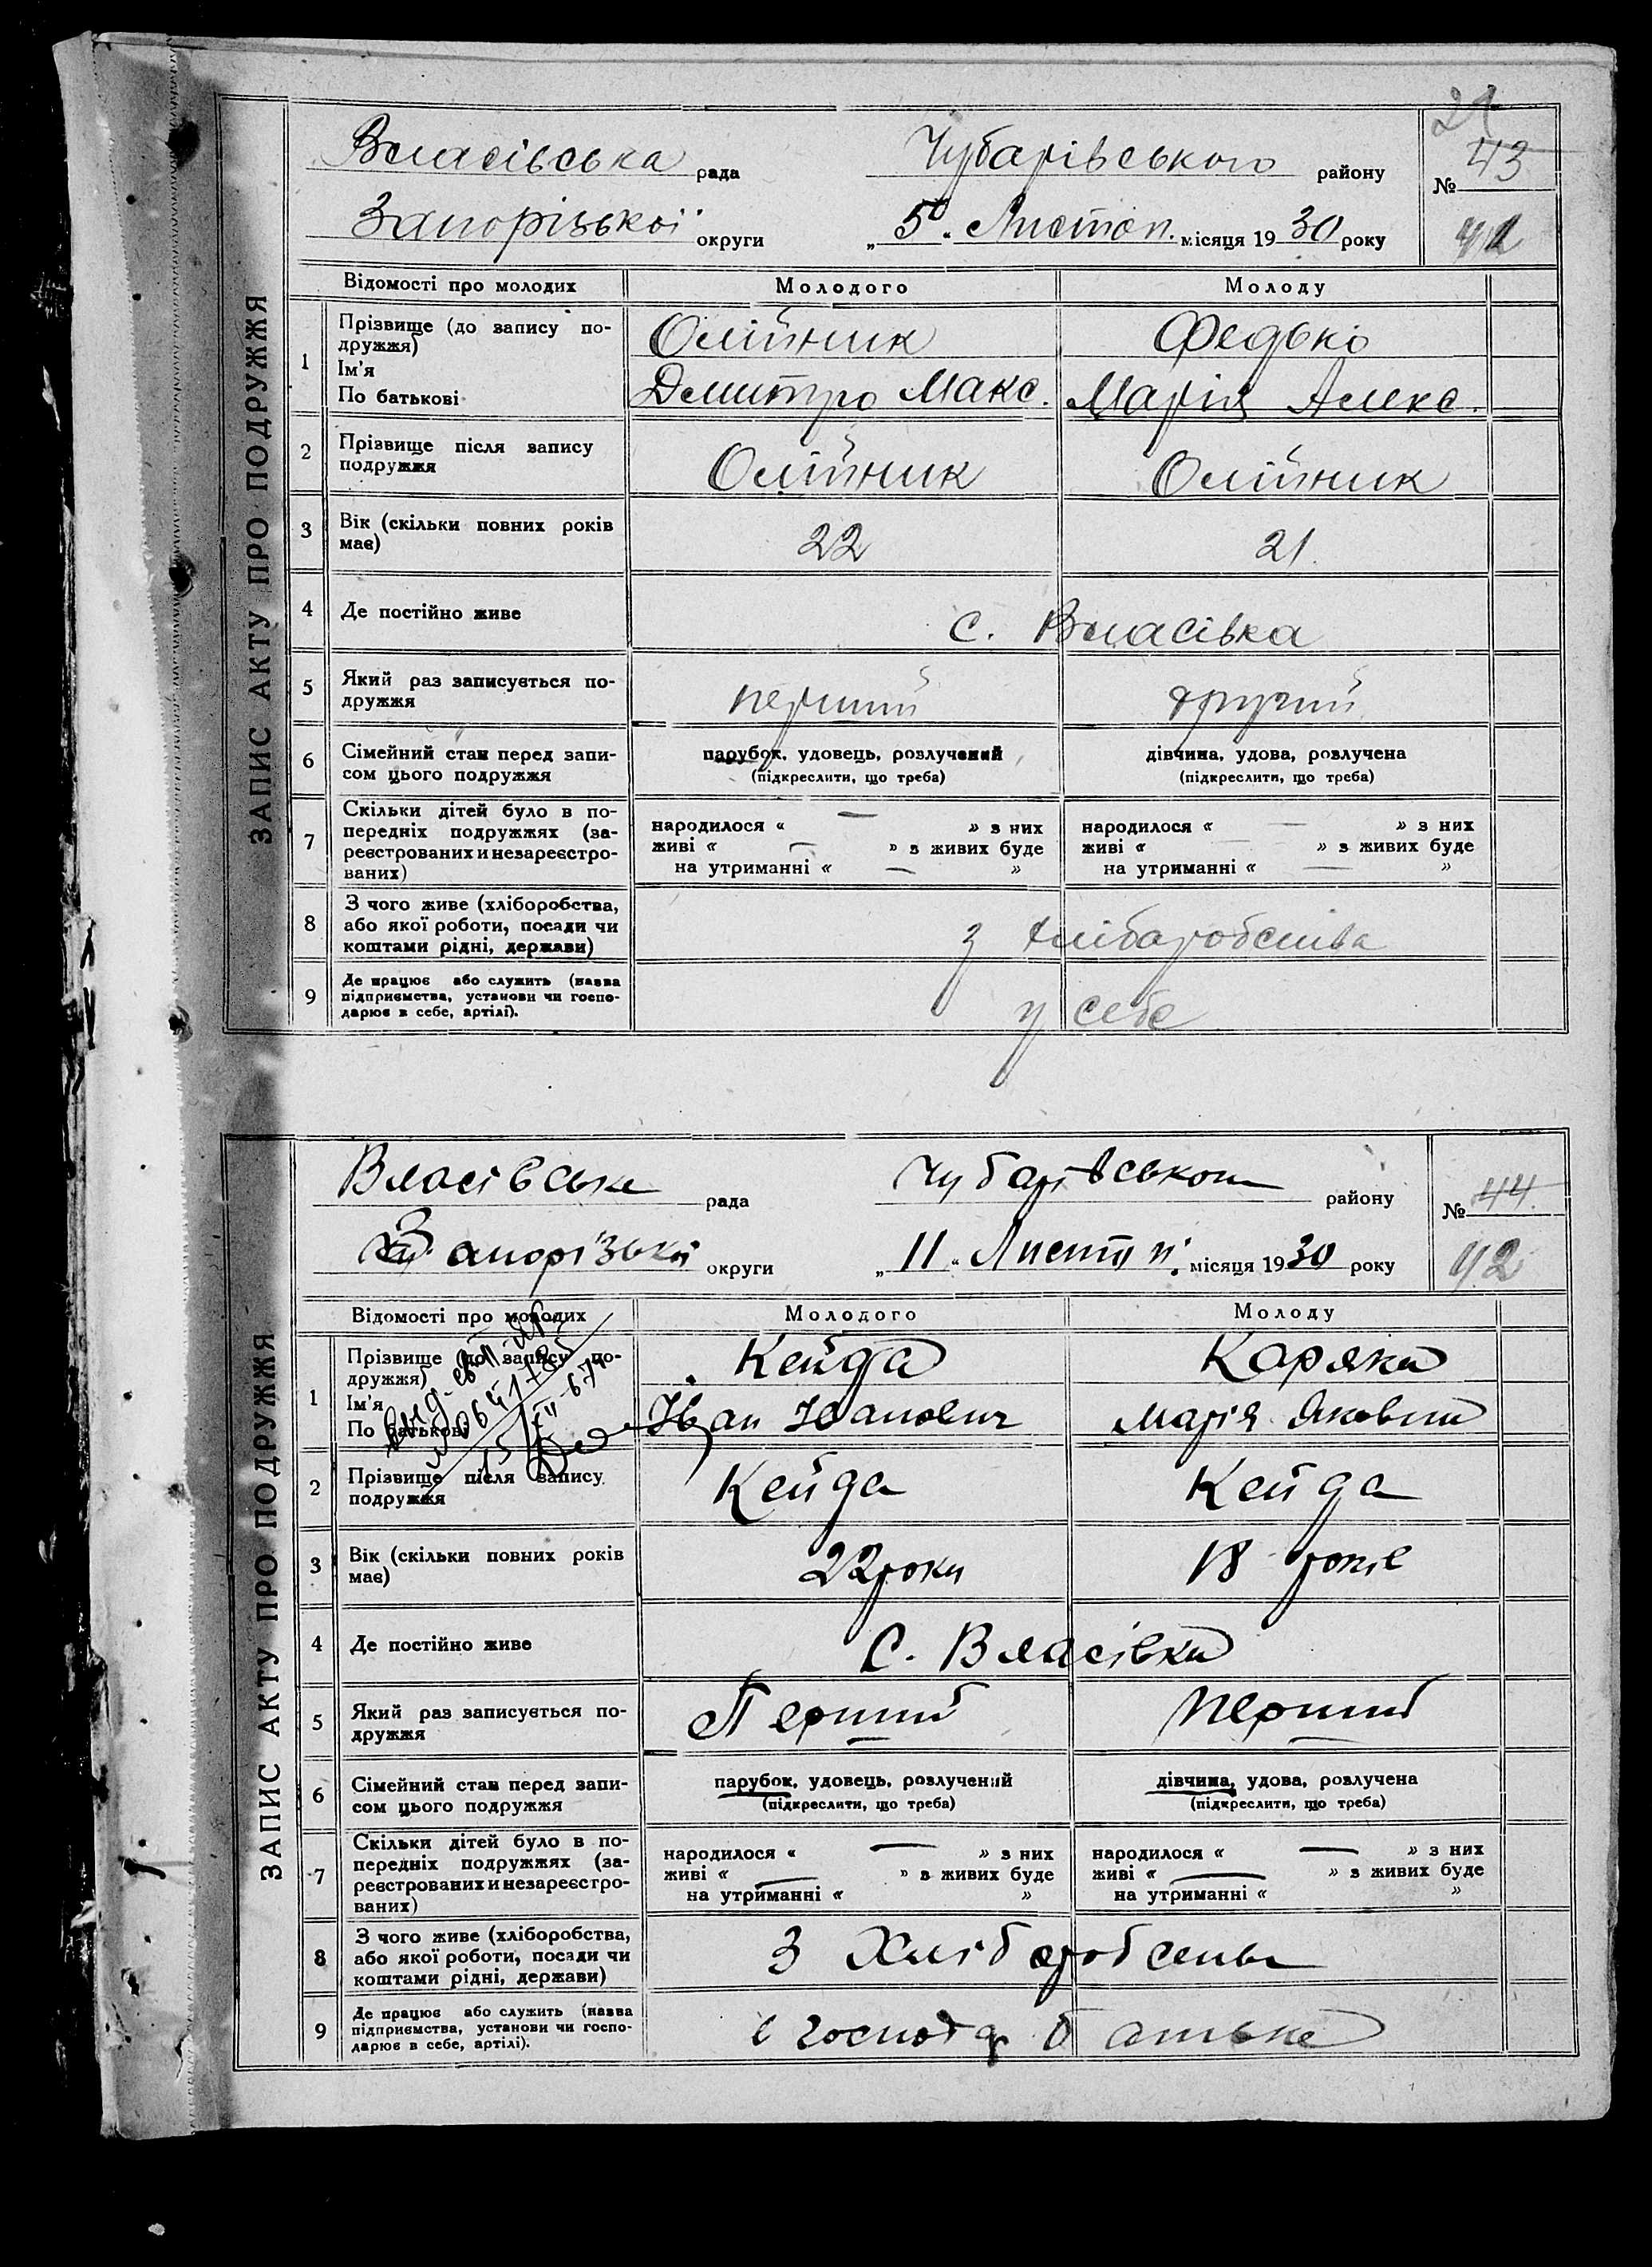 21
Власівська рада Чубарівського району № 43
Запорізької округи „5" Листоп. місяця 1930 року 41
ЗАПИС АКТУ ПРО ПОДРУЖЖЯ
Відомості про молодих Молодого Молоду
1 Прізвище (до запису по- Олійник Федько
дружжя)
Ім'я Дмитро Макс. Марія Алекс.
По батькові
2 Прізвище після запису Олійник Олійник
подружжя
3 Вік (скільки повних років 22 21.
має)
4 Де постійно живе с. Власівка
5 Який раз записується по- перший другий
дружжя
6 Сімейний стан перед запи- парубок, удовець, розлучений дівчина, удова, розлучена
сом цього подружжя (підкреслити, що треба) (підкреслити, що треба)
7 Скільки дітей було в по- народилося « — » з них народилося « — » з них
передніх подружжях (за- живі « — » з живих буде живі « — » з живих буде
реєстрованих и незареєстро- на утриманні « — » на утриманні « — »
ваних)
8 З чого живе (хліборобства, з хліборобства
або якої роботи, посади чи
коштами рідні, держави)
9 Де працює або служить (назва у себе
підприємства, установи чи госпо-
дарює в себе, артілі).
Власівська рада Чубарівського району № 44
Запорізької округи „11" Листоп. місяця 1930 року 42
ЗАПИС АКТУ ПРО ПОДРУЖЖЯ
Відомості про молодих Молодого Молоду
1 Прізвище (до запису по- Кейда Каряка
дружжя)
Ім'я Іван Іванович Марія Яковл
По батькові
2 Прізвище після запису Кейда Кейда
подружжя
3 Вік (скільки повних років 22 роки 18 років
має)
4 Де постійно живе С. Власівка
5 Який раз записується по- Перший перший
дружжя
6 Сімейний стан перед запи- парубок, удовець, розлучений дівчина, удова, розлучена
сом цього подружжя (підкреслити, що треба) (підкреслити, що треба)
7 Скільки дітей було в по- народилося « — » з них народилося « — » з них
передніх подружжях (за- живі « — » з живих буде живі « — » з живих буде
реєстрованих и незареєстро- на утриманні « » на утриманні « »
ваних)
8 З чого живе (хліборобства, З Хліборобства
або якої роботи, посади чи
коштами рідні, держави)
9 Де працює або служить (назва в господар батька
підприємства, установи чи госпо-
дарює в себе, артілі).